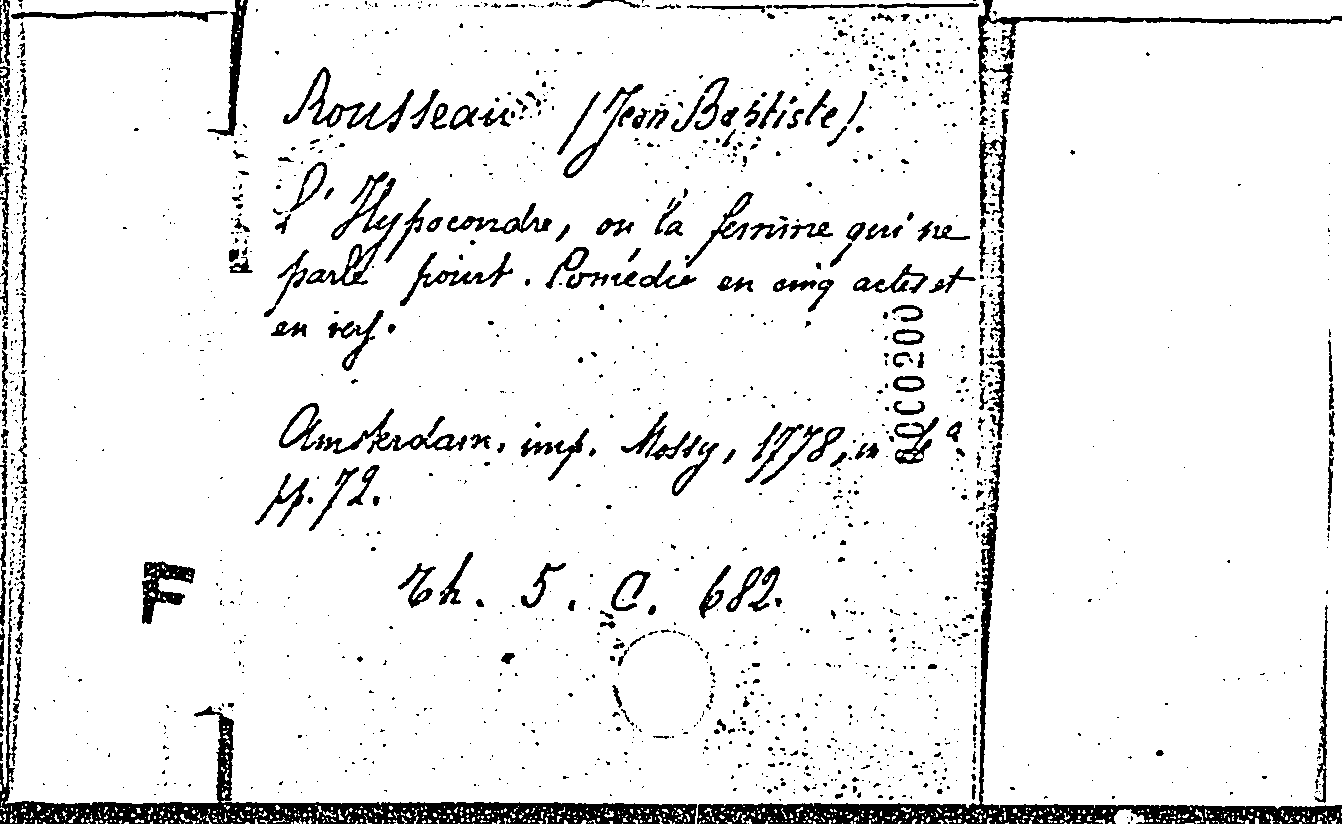 Rousseau (Jean Baptiste).
L'Hypocondre, ou la femme qui ne
parle point. Comédie en cinq actes et
en vers.
Amsterdam, imp. Mossy, 1778, in 4°
pp. 72.
Th. 5. C. 682.
F